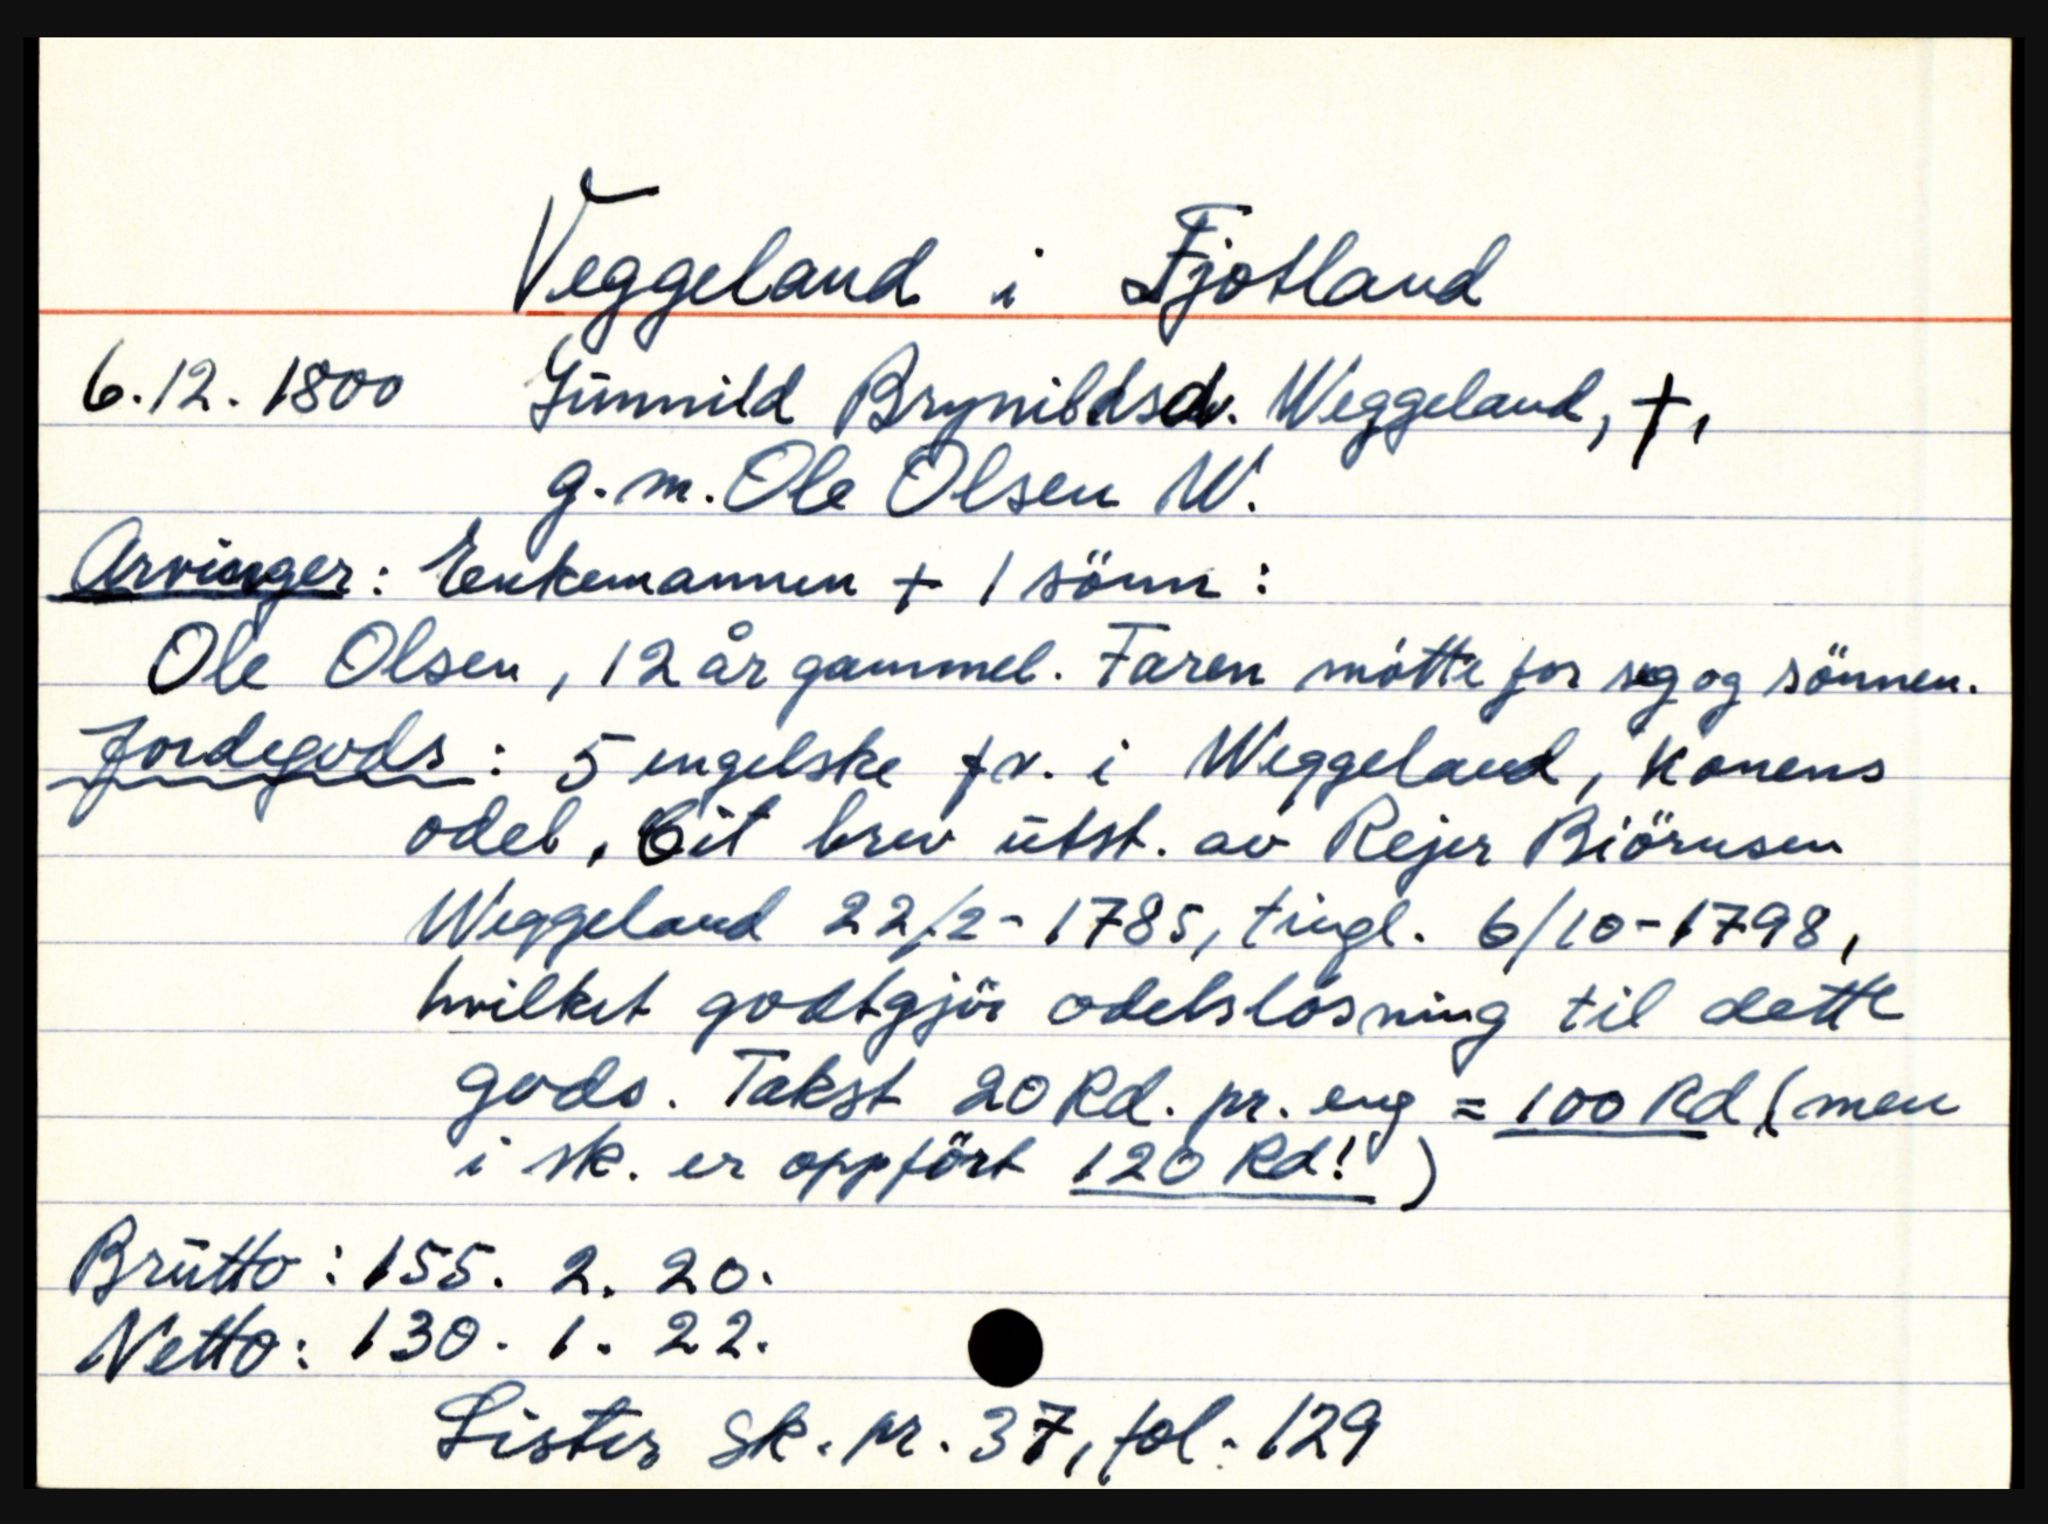 Veggeland i Fjotland
6.12.1800 Gunnild Brynildsd. Weggeland, †,
g.m. Ole Olsen W.
Arvinger: Enkemannen + 1 sönn:
Ole Olsen, 12 år gammel. Faren møtte for seg og sönnen.
Jordegods: 5 engelske fv. i Weggeland, konens
odel, brev utst. av Rejer Biörnsen
Weggeland 22/2-1785, tingl. 6/10-1798,
hvilket godtgjör odelslösning til dette
gods. Takst 20 Rd. pr. eng = 100 Rd (men
i sk. er oppfört 120 Rd!)
Brutto: 155. 2. 20.
Netto: 130. 1. 22.
Lister sk. pr. 37, fol. 129